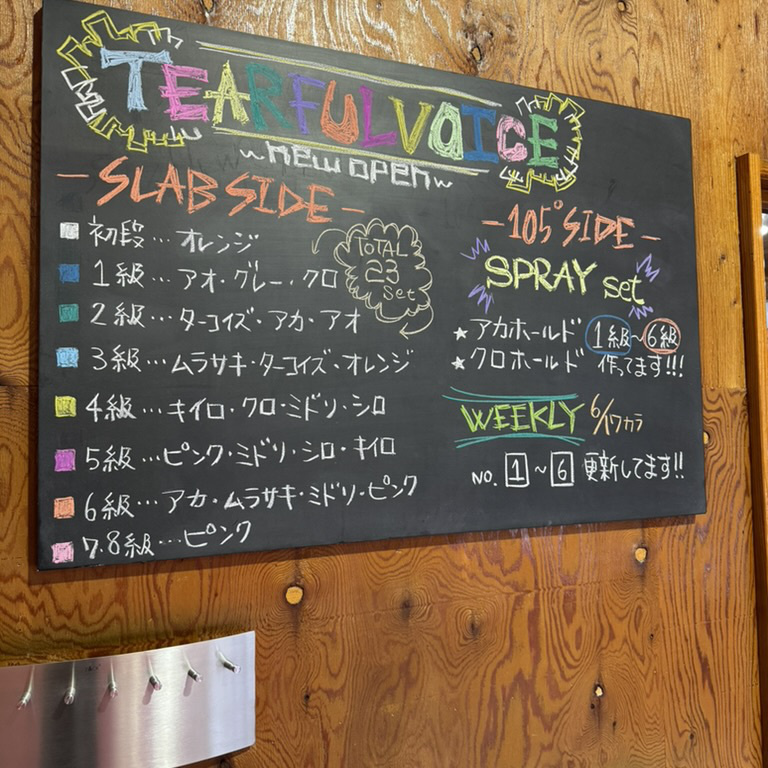 TEARFULVOICE
~new open~
-SLAB SIDE-
初段…オレンジ
1級…アオ・グレー・クロ
2級…ターコイズ・アカ・アオ
3級…ムラサキ・ターコイズ・オレンジ
4級…キイロ・クロ・ミドリ・シロ
5級…ピンク・ミドリ・シロ・キイロ
6級…アカ・ムラサキ・ミドリ・ピンク
7.8級…ピンク
TOTAL
23
set
-105°SIDE-
SPRAY set
★アカホールド 1級~6級
★クロホールド 作ってます!!!
WEEKLY 6/17カラ
NO. 1~6 更新してます!!